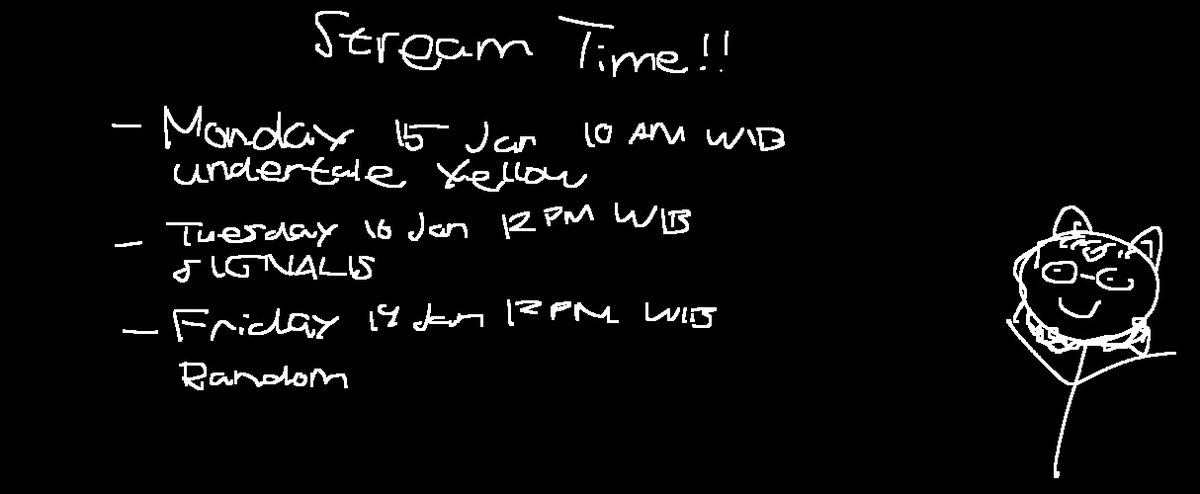 Stream Time!!
- Monday 15 Jan 10 AM WIB
undertale Yellow
- Tuesday 16 Jan 12 PM WIB
SIGNALIS
- Friday 19 Jan 12 PM WIB
Random